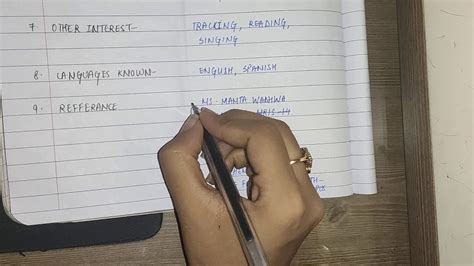 7. OTHER INTEREST- TRACKING, READING,
SINGING
8. LANGUAGES KNOWN- ENGLISH, SPANISH
9. REFFERANCE MS. MANTA WAHWA